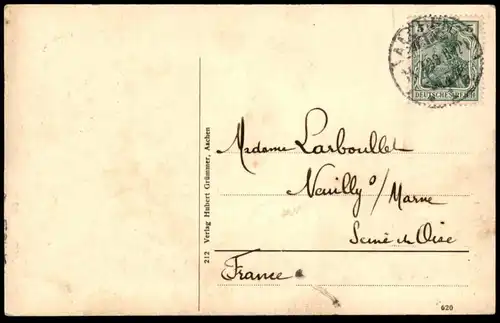 AACHEN
5
DEUTSCHES REICH
Madame Larboullet
Neuilly s/Marne
Seine et Oise
France
212 Verlag Hubert Grümmer, Aachen
620